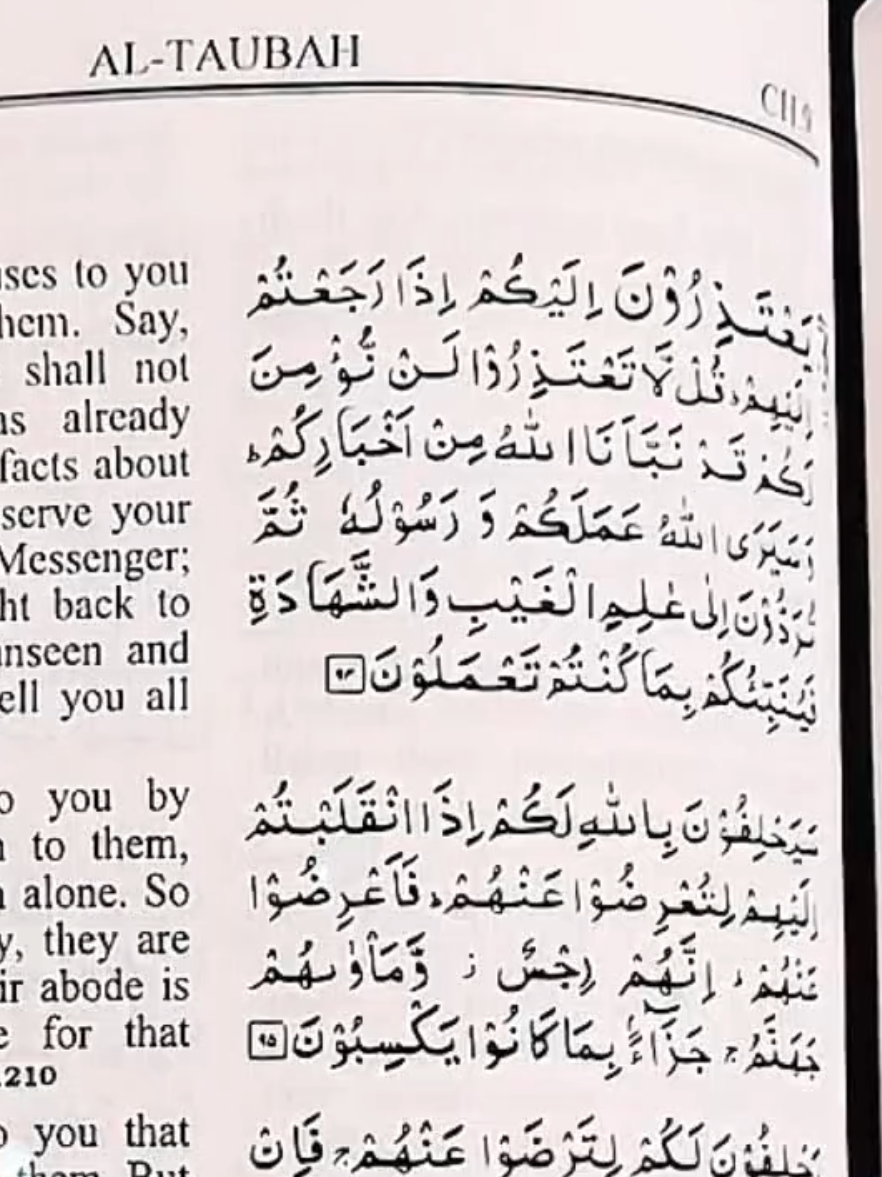 AL-TAUBAH
CH.9
uses to you
hem. Say,
shall not
as already
facts about
serve your
Messenger;
ht back to
unseen and
ell you all
يَعْتَذِرُوْنَ اِلَيْكُمْ اِذَا رَجَعْتُمْ
اِلَيْهِمْ ؕ قُلْ لَّا تَعْتَذِرُوْا لَنْ نُّؤْمِنَ
لَكُمْ قَدْ نَبَّاَنَا اللّٰهُ مِنْ اَخْبَارِكُمْ ؕ
وَسَيَرَى اللّٰهُ عَمَلَكُمْ وَ رَسُوْلُهٗ ثُمَّ
تُرَدُّوْنَ اِلٰى عٰلِمِ الْغَيْبِ وَالشَّهَادَةِ
فَيُنَبِّئُكُمْ بِمَا كُنْتُمْ تَعْمَلُوْنَ ۹۴
o you by
n to them,
n alone. So
y, they are
ir abode is
e for that
.210
سَيَحْلِفُوْنَ بِاللّٰهِ لَكُمْ اِذَا انْقَلَبْتُمْ
اِلَيْهِمْ لِتُعْرِضُوْا عَنْهُمْ ؕ فَاَعْرِضُوْا
عَنْهُمْ ؕ اِنَّهُمْ رِجْسٌ ز وَّمَاْوٰىهُمْ
جَهَنَّمُ ۚ جَزَآءًۢ بِمَا كَانُوْا يَكْسِبُوْنَ ۹۵
o you that
them. But
يَحْلِفُوْنَ لَكُمْ لِتَرْضَوْا عَنْهُمْ ۚ فَاِنْ